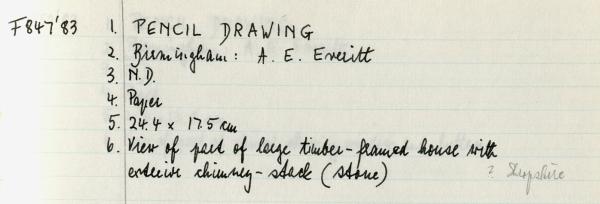 F847'83 1. PENCIL DRAWING
2. Birmingham: A. E. Everitt
3. N.D.
4. Paper
5. 24.4 x 17.5 cm
6. View of part of large timber-framed house with
chimney-stack (stone) ? Shropshire